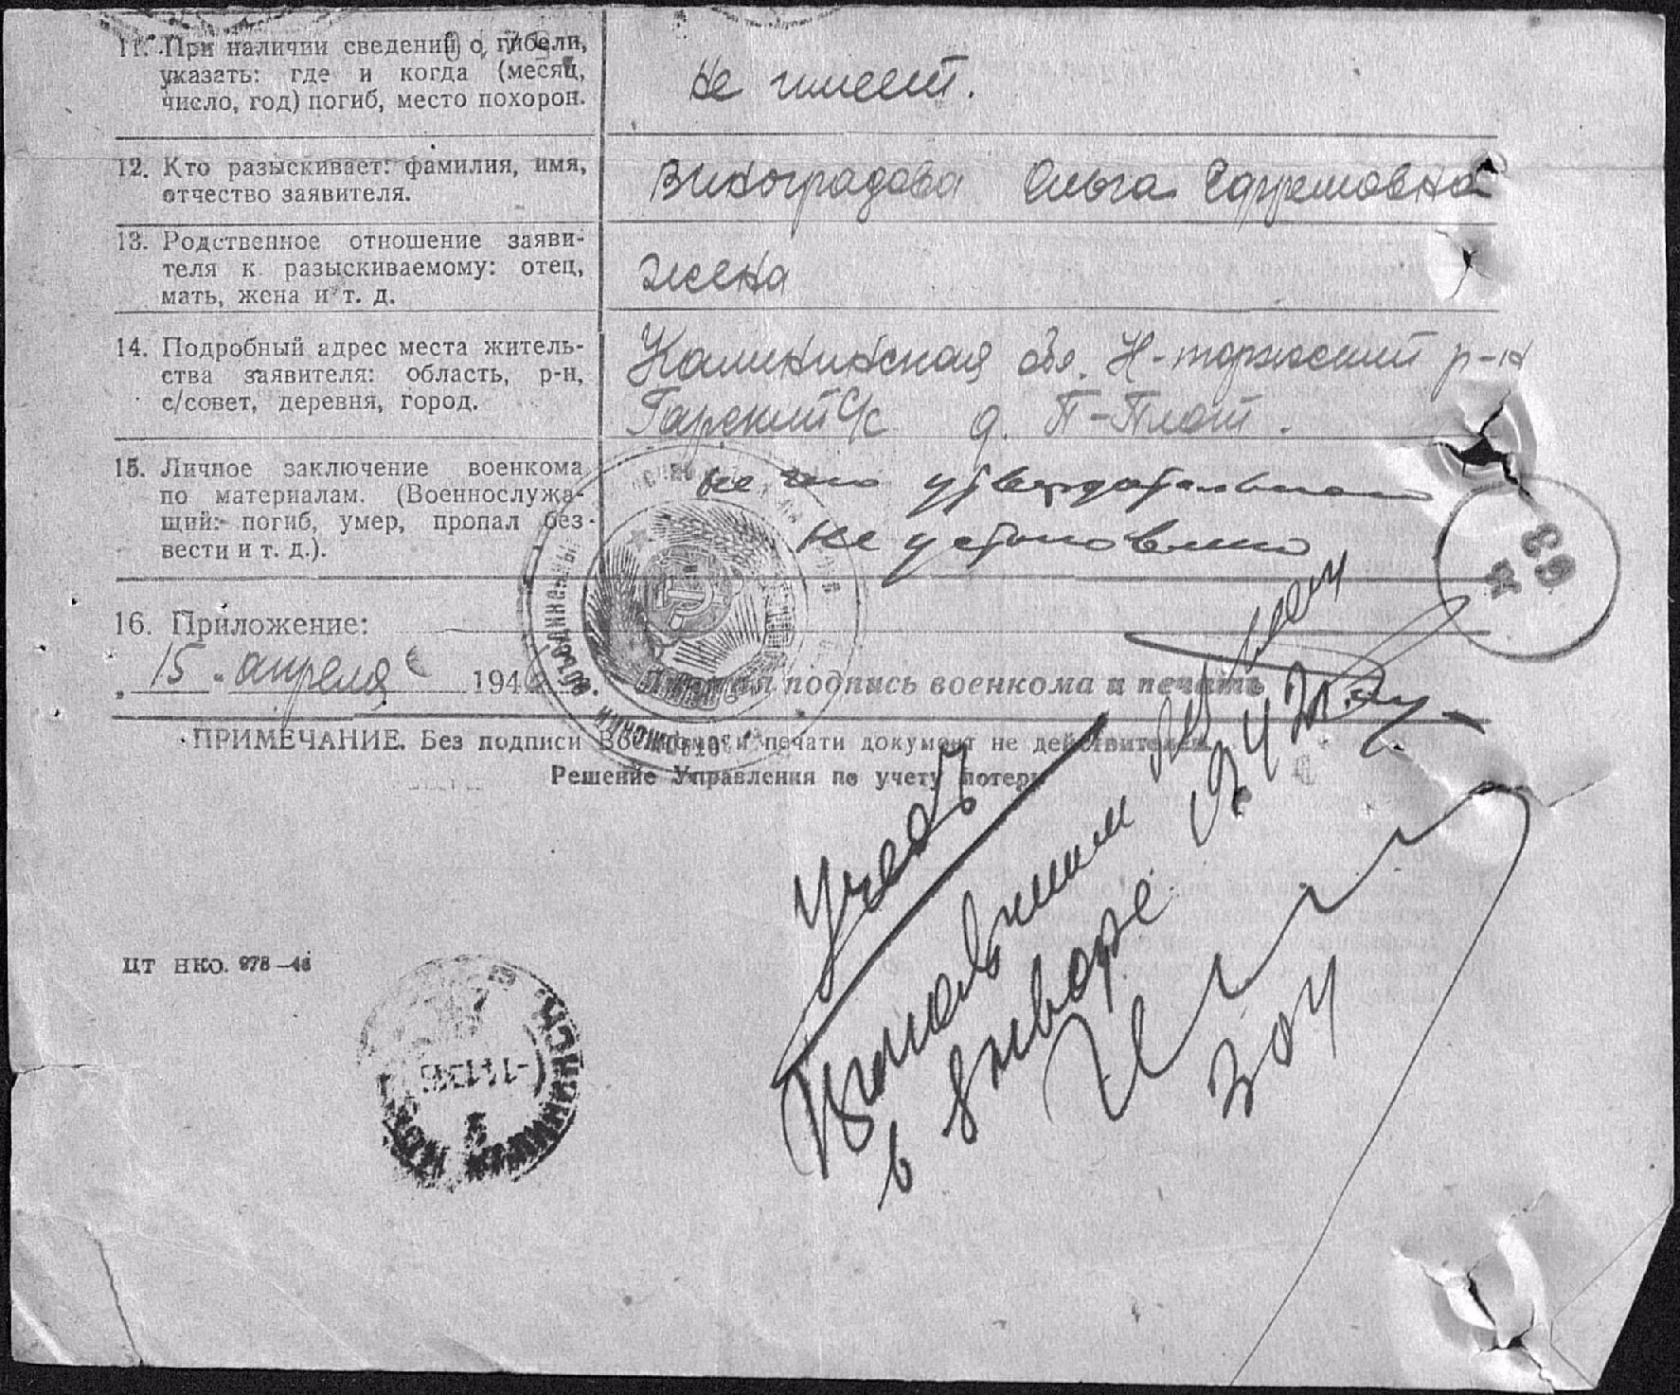 11. При наличии сведений о гибели,
указать: где и когда (месяц,
число, год) погиб, место похорон.
не имеет.
12. Кто разыскивает: фамилия, имя,
отчество заявителя.
Виноградова Ольга Ефремовна
13. Родственное отношение заяви-
теля к разыскиваемому: отец,
мать, жена и т. д.
жена
14. Подробный адрес места житель-
ства заявителя: область, р-н,
с/совет, деревня, город.
Калининская обл. Н-торжский р-н
Гарский с/с д. П-Плот.
15. Личное заключение военкома
по материалам. (Военнослужа-
щий: погиб, умер, пропал без-
вести и т. д.).
утвердительного
не установлено
16. Приложение:
15 апреля 194
подпись военкома и печать
ПРИМЕЧАНИЕ. Без подписи военкома и печати документ не действителен.
Решение Управления по учету потерь
Учесть
Пропавшим
в январе
304
63
ЦТ НКО. 978—46